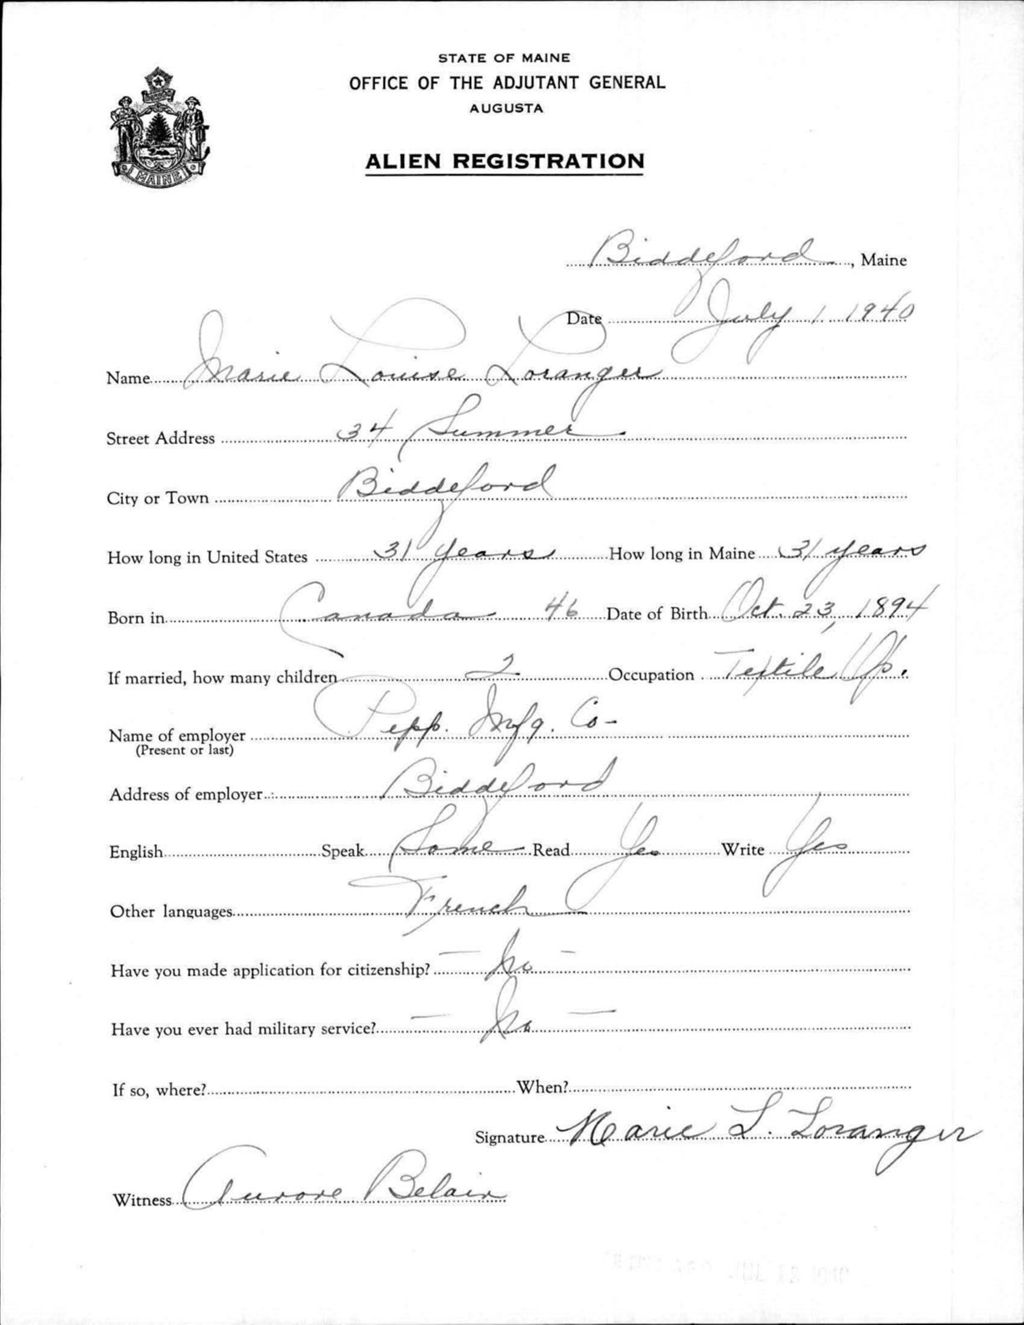 STATE OF MAINE
OFFICE OF THE ADJUTANT GENERAL
AUGUSTA
ALIEN REGISTRATION
MAINE
Biddeford, Maine
Date July 1, 1940
Name Marie Louise Loranger
Street Address 34 Summer
City or Town Biddeford
How long in United States 31 years How long in Maine 31 years
Born in Canada 46 Date of Birth Oct. 23, 1894
If married, how many children 2 Occupation Textile Op.
Name of employer Pepp. Mfg. Co-
(Present or last)
Address of employer Biddeford
English Speak Some Read Yes Write Yes
Other languages French
Have you made application for citizenship? - No -
Have you ever had military service? - No -
If so, where? When?
Signature Marie L. Loranger
Witness Aurore Belair